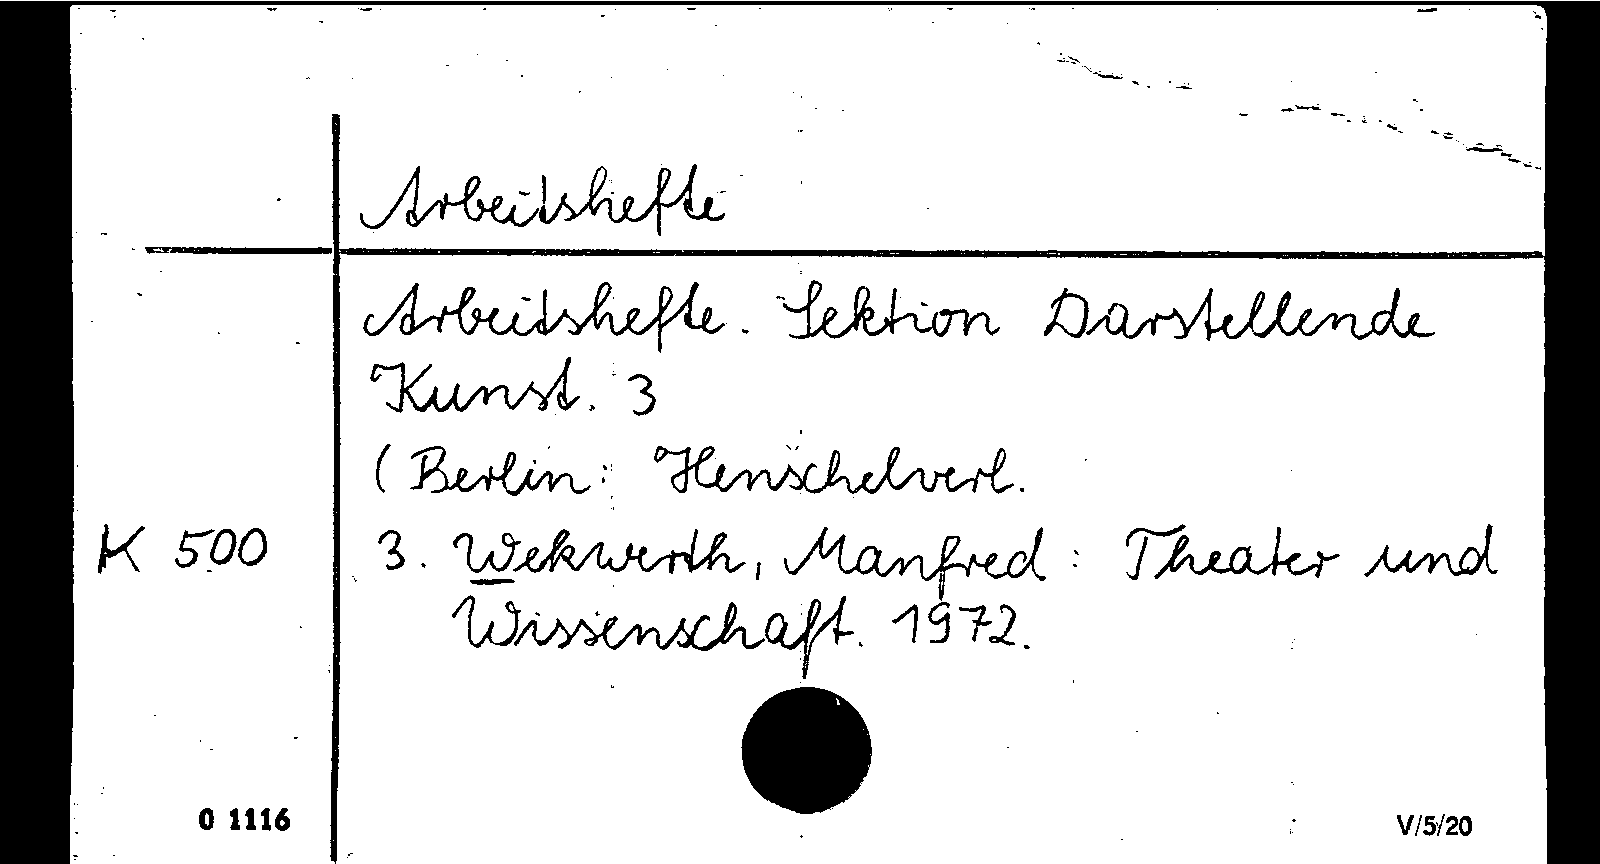 Arbeitshefte
Arbeitshefte. Sektion Darstellende
Kunst. 3
(Berlin: Henschelverl.
K 500 3. Wekwerth, Manfred: Theater und
Wissenschaft. 1972.
0 1116 V/5/20